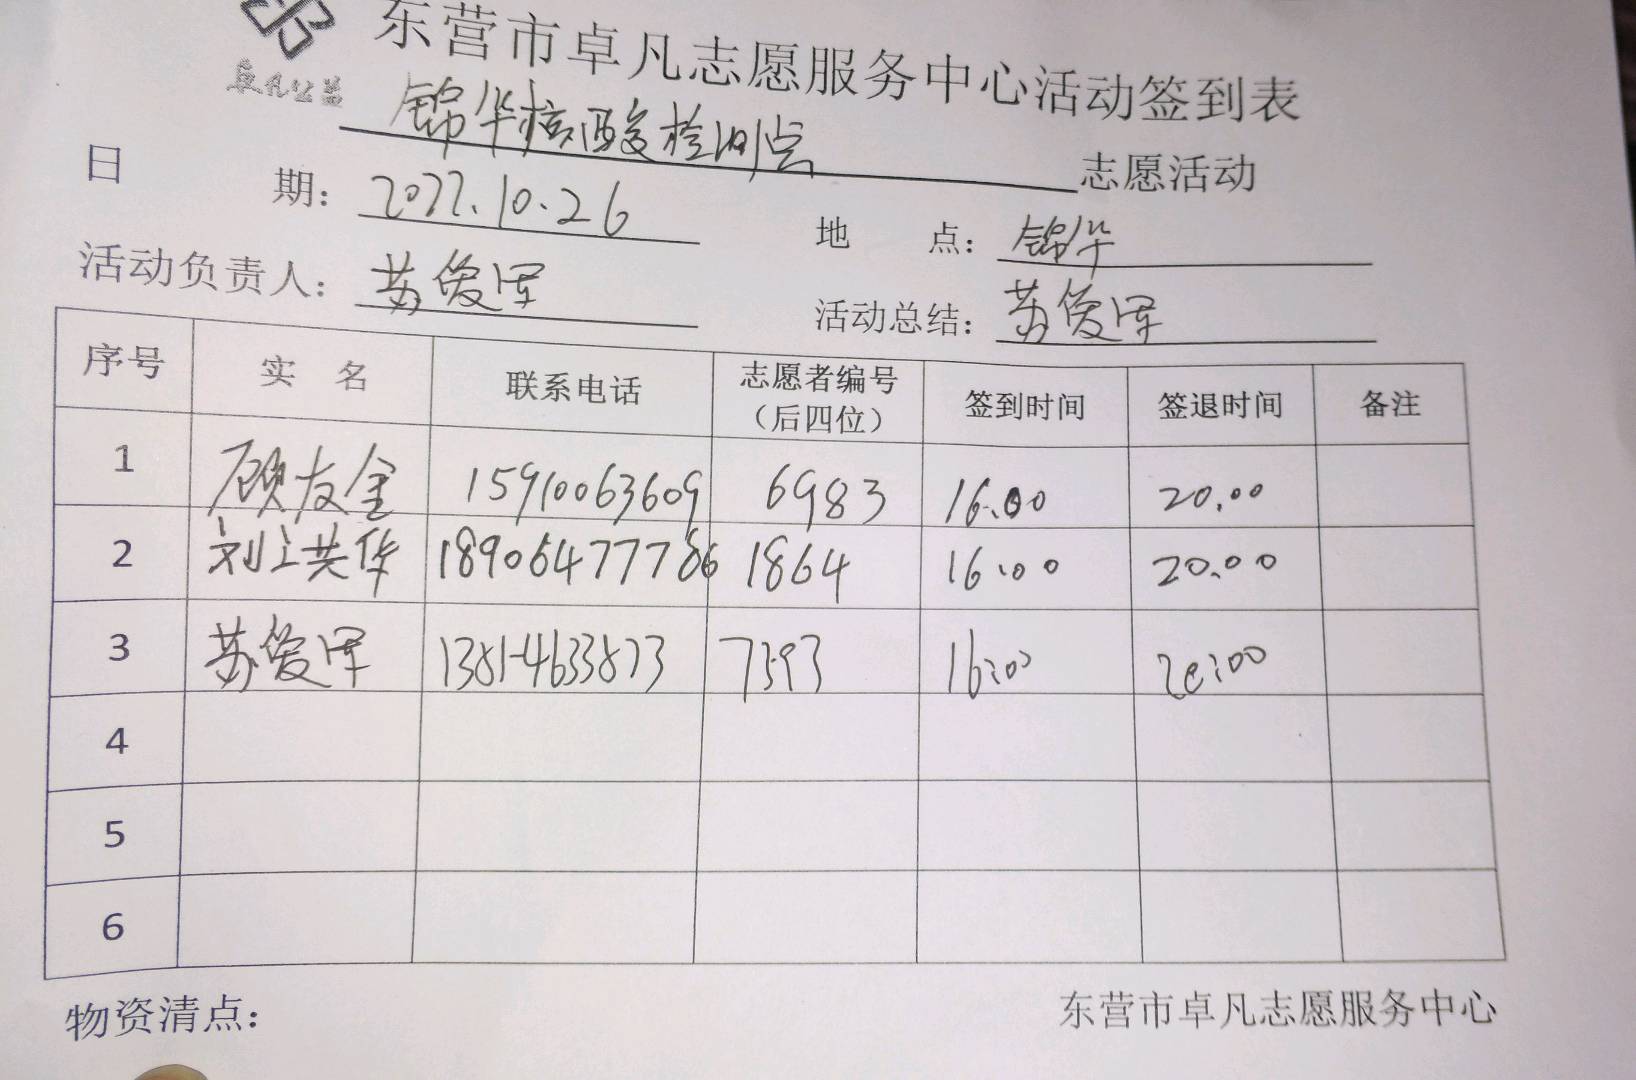 东营市卓凡志愿服务中心活动签到表
卓凡公益
锦华核酸检测点 志愿活动
日 期: 2022.10.26 地 点: 锦华
活动负责人: 苏俊军 活动总结: 苏俊军
序号 实 名 联系电话 志愿者编号（后四位） 签到时间 签退时间 备注
1 顾友全 15910063609 6983 16.00 20.00
2 刘洪华 18906477786 1864 16:00 20.00
3 苏俊军 13814633873 7393 16:00 20:00
4
5
6
物资清点: 东营市卓凡志愿服务中心